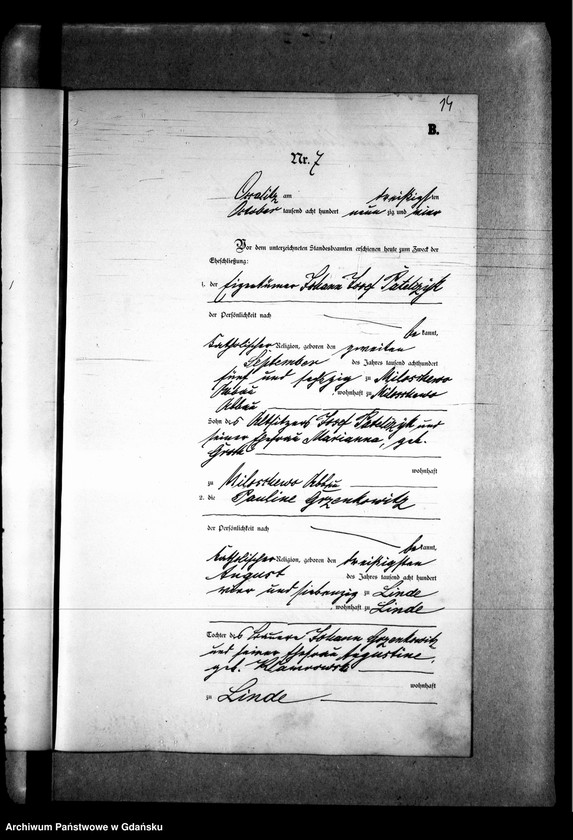 14
B.
Nr. 7
am dreißigsten
Oktober tausend acht hundert neun zig und vier
Vor dem unterzeichneten Standesbeamten erschienen heute zum Zweck der
Eheschließung:
1. der Eigentümer Johann Josef Patelczyk
der Persönlichkeit nach
be kannt,
katholischer Religion, geboren den zweiten
September des Jahres tausend achthundert
fünf und sechzig zu Miloschewo
Abbau, wohnhaft zu Miloschewo
Abbau
Sohn des Altsitzers Josef Patelczyk und
seiner Ehefrau Marianna, geb.
wohnhaft
zu Miloschewo Abbau
2. die Pauline Grzenkowitz
der Persönlichkeit nach
be kannt,
katholischer Religion, geboren den dreißigsten
August des Jahres tausend acht hundert
vier und siebenzig zu Linde
, wohnhaft zu Linde
Tochter des Bauern Johann Grzenkowitz
und seiner Ehefrau Augustine,
geb.
wohnhaft
zu Linde
Archiwum Państwowe w Gdańsku